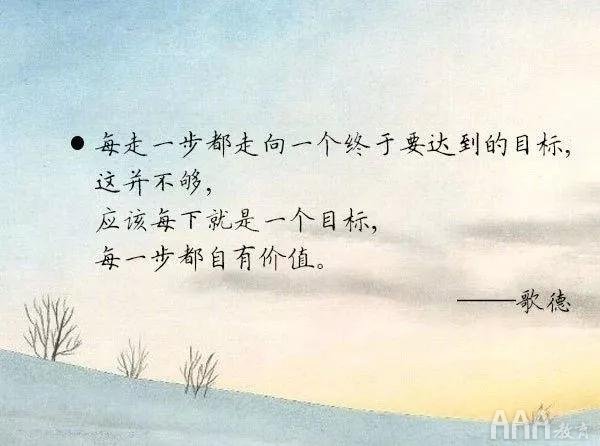 ● 每走一步都走向一个终于要达到的目标，
这并不够，
应该每下就是一个目标，
每一步都自有价值。
——歌德
AAA教育